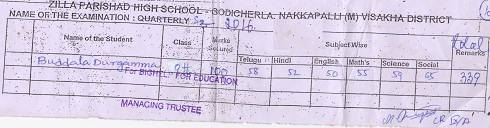 ZILLA PARISHAD HIGH SCHOOL - GODICHERLA. NAKKAPALLI (M) VISAKHA DISTRICT
NAME OF THE EXAMINATION : QUARTERLY 2016
Name of the Student Class Marks Secured Subject Wise Total Remarks
Telugu Hindi English Math's Science Social
Buddala Durgamma 9th 100 58 52 50 55 59 65 339
For BIGHELP FOR EDUCATION
MANAGING TRUSTEE